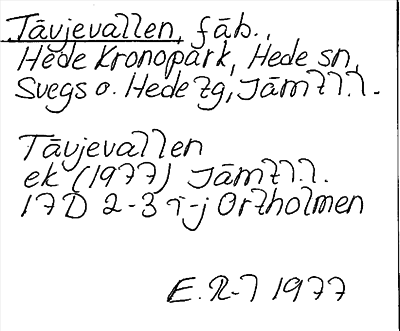 Tāvjevallen, fāb.,
Hede Kronopark, Hede sn,
Svegs o. Hede tg, Jāmtl.l.
Tāvjevallen
ek (1977) Jāmtl.l.
17D 2-3 i-j Ortholmen
E.R-J 1977